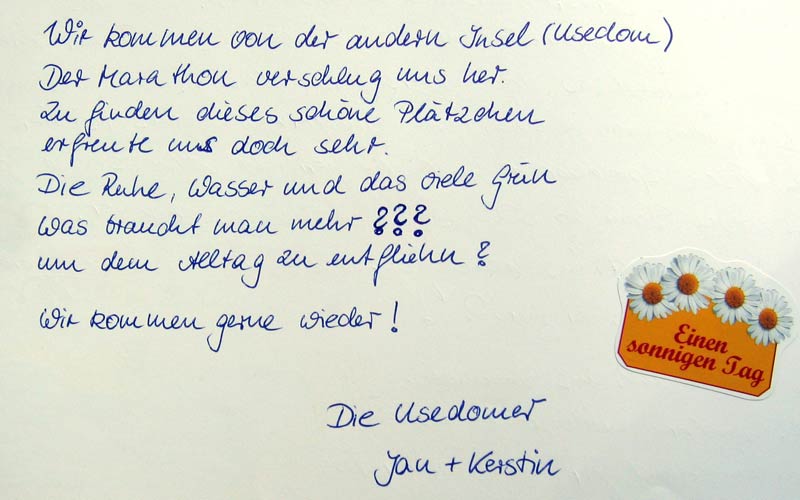 Wir kommen von der andern Insel (Usedom)
Der Marathon verschlug uns her.
Zu finden dieses schöne Plätzchen
erfreute uns doch sehr.
Die Ruhe, Wasser und das viele Grün
was braucht man mehr ???
um dem Alltag zu entfliehn?
Wir kommen gerne wieder!
Einen
sonnigen Tag
Die Usedomer
Jan + Kerstin